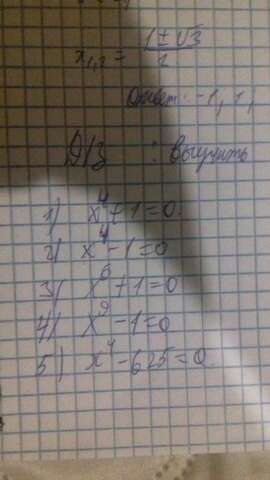 x₁,₂ = (1 ± √3)/2
Ответ: -1, 1,
Д/З : Выучить
1) x⁴ + 1 = 0.
2) x⁴ - 1 = 0
3) x⁶ + 1 = 0
4) x⁹ - 1 = 0
5) x⁴ - 625 = 0.